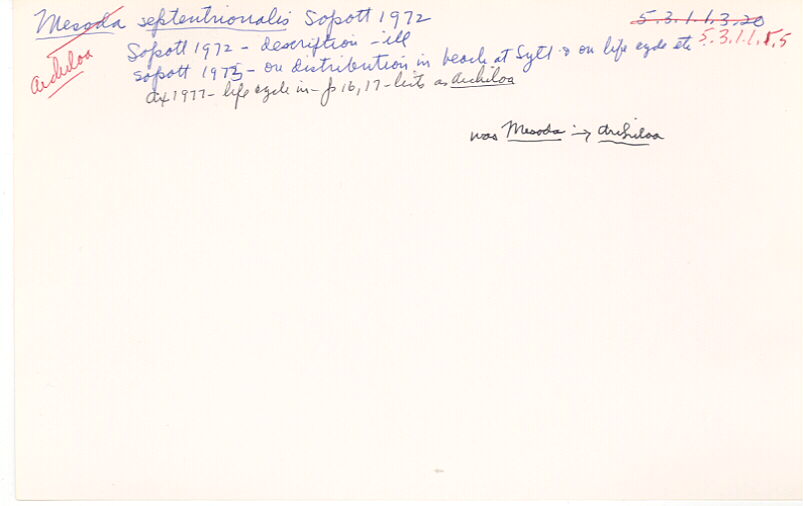 Mesoda septentrionalis Sopott 1972
5.3.1.1.3.20
Archiloa
5.3.1.1.1.5
Sopott 1972 - description - ill
Sopott 1973 - on distribution in beach at Sylt & on life cycle etc
Ax 1977 - life cycle in - p 16, 17 - lists as Archiloa
was Mesoda → Archiloa